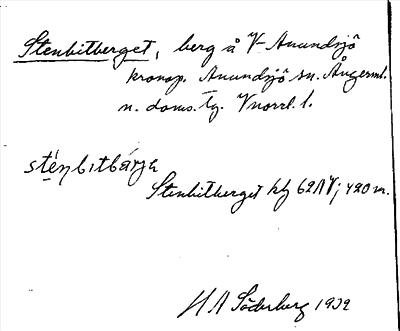 Stenbitberget, berg å V-Anundsjö
kronop. Anundsjö sn. Ångerml.
n. doms. tg. Vnorrl. l.
Stenbitberget kbl 62 NV; 420 m.
H A Söderberg 1932